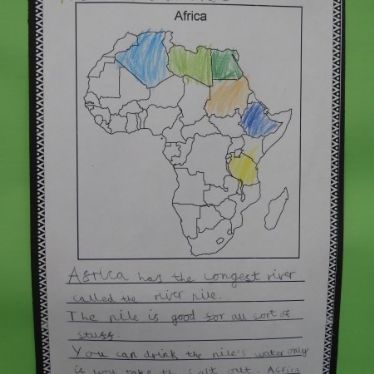 Africa
Africa has the longest river
called the river nile.
The nile is good for all sort of
stuff.
You can drink the nile's water only
if you take the salt out. Africa